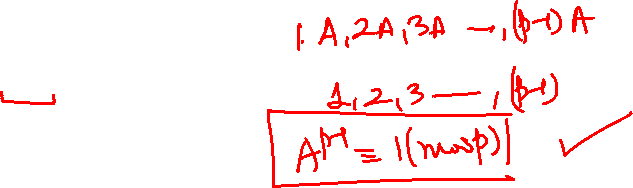 1.A, 2A, 3A —, (p-1)A
1, 2, 3 —, (p-1)
A^{p-1} ≡ 1(mod p)